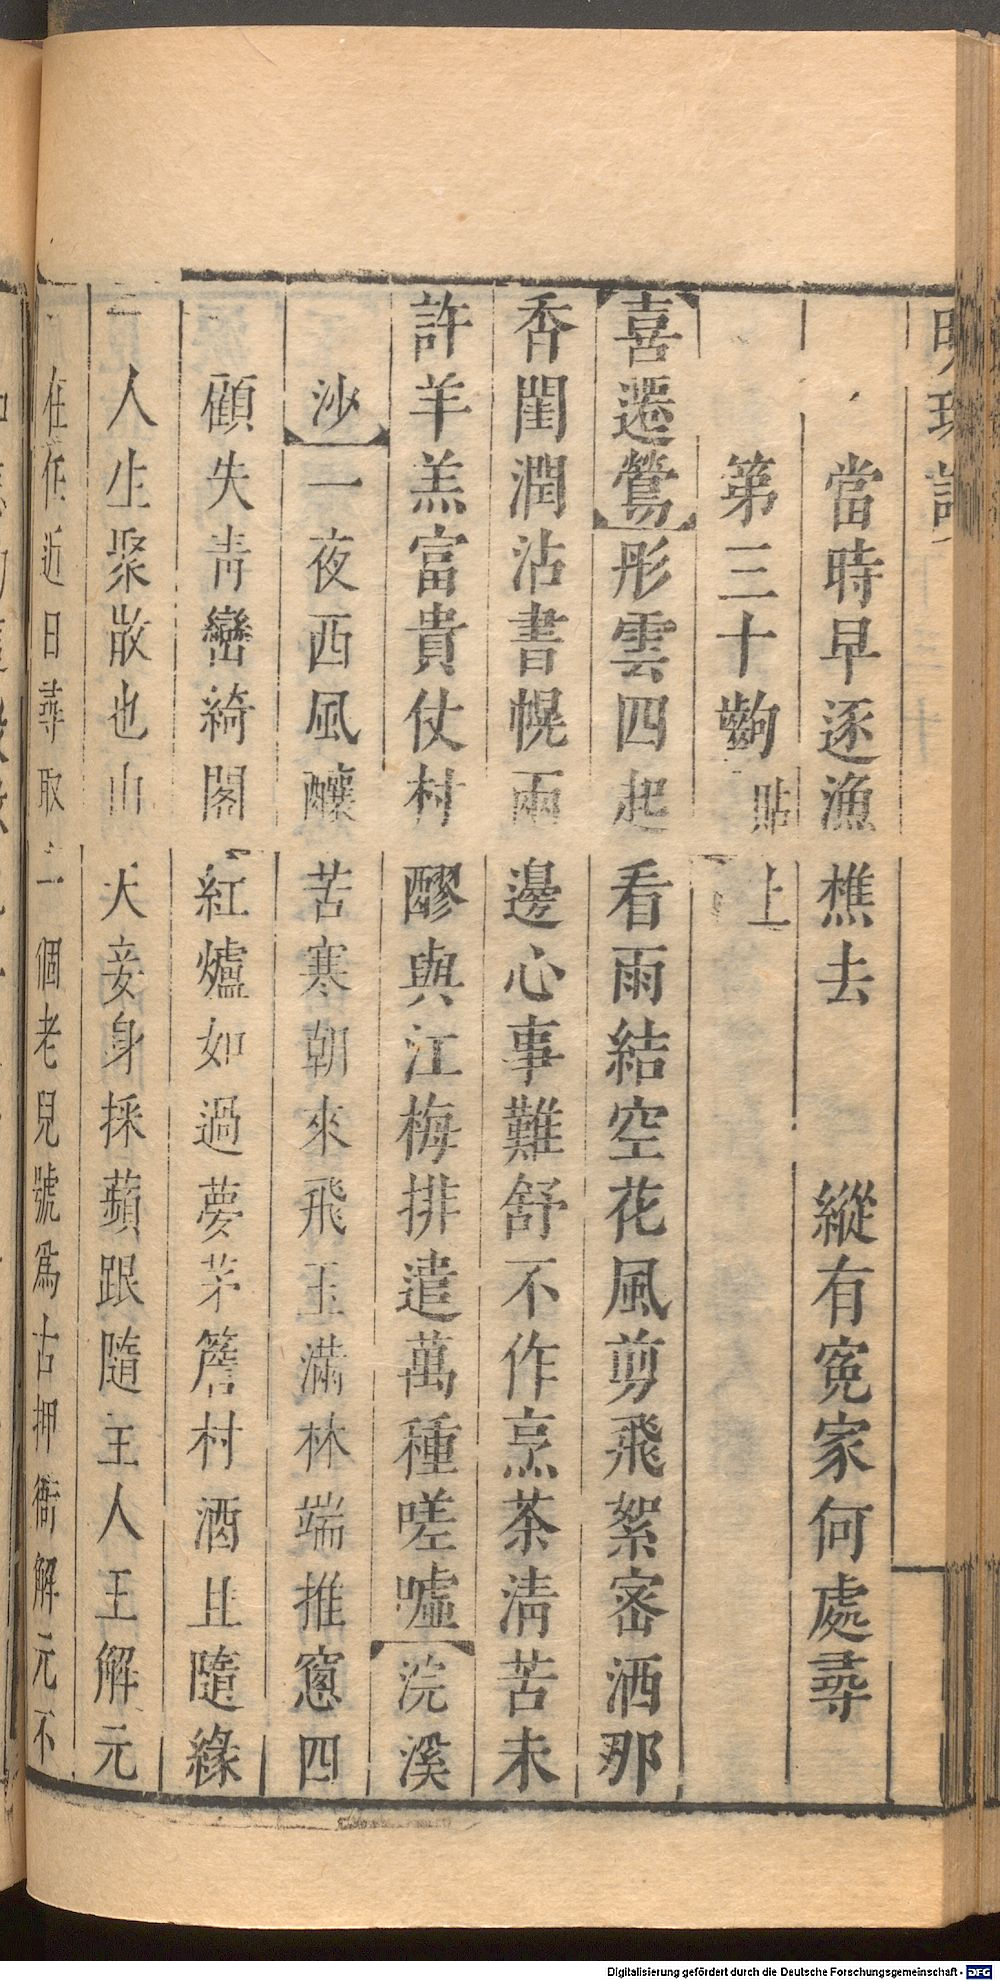 明珠記
當時早逐漁樵去　縱有寃家何處尋
第三十齣 貼上
【喜遷鶯】彤雲四起看雨結空花風剪飛絮密洒那
香閨潤沾書幌兩邊心事難舒不作烹茶清苦未
許羊羔富貴仗村醪與江梅排遣萬種嗟噓【浣溪
沙】一夜西風釀苦寒朝來飛玉滿林端推窻四
顧失青巒綺閣紅爐如過夢茅簷村酒且隨緣
人生聚散也 妾身採蘋跟隨王人王解元
在任近日尋取一個老兒號爲古押衙解元不
Digitalisierung gefördert durch die Deutsche Forschungsgemeinschaft - DFG